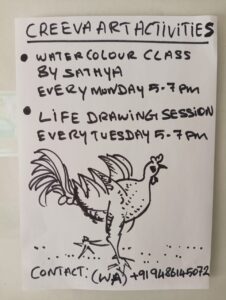 CREEVA ART ACTIVITIES
WATERCOLOUR CLASS
BY SATHYA
EVERY MONDAY 5.7 PM
LIFE DRAWING SESSION
EVERY TUESDAY 5.7 PM
CONTACT: (WA) +919486145072